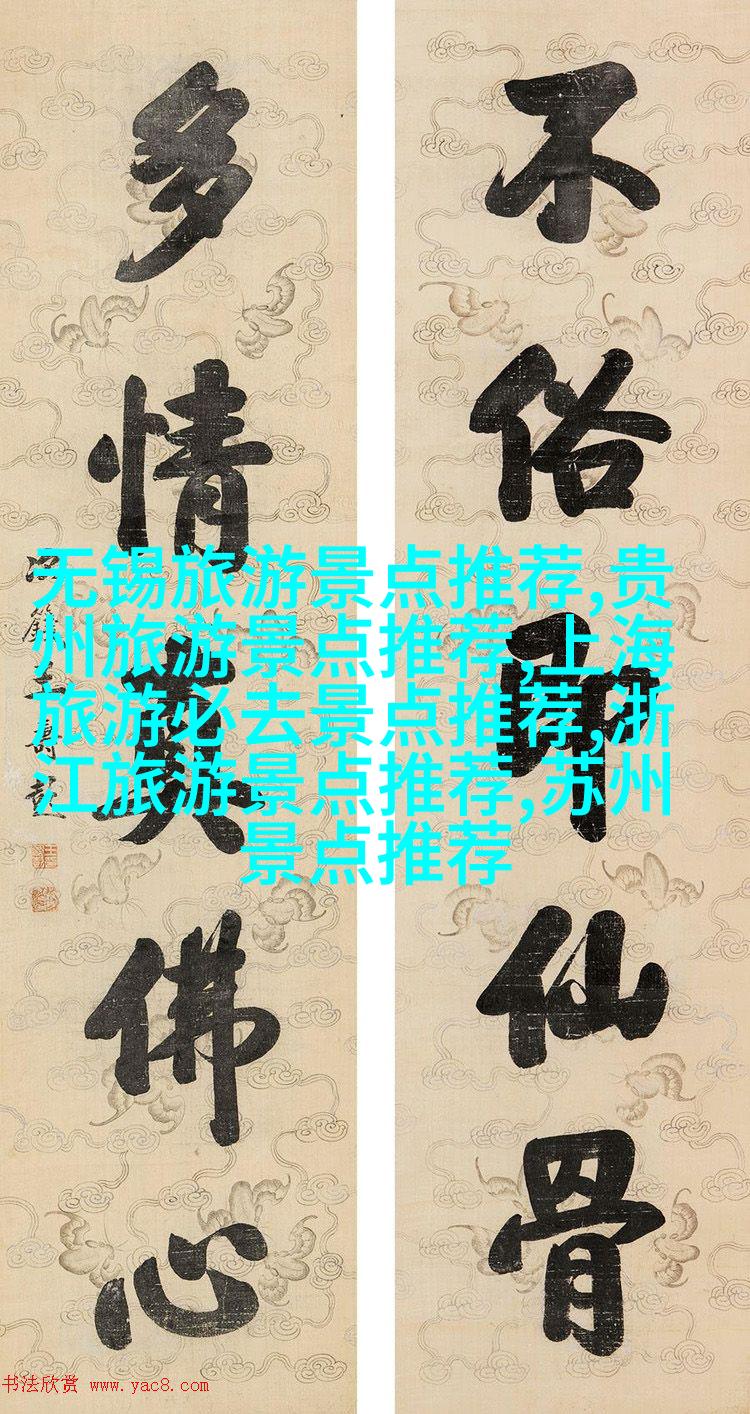 不俗即仙骨
多情真佛心
壽彭
无锡旅游景点推荐,贵
州旅游景点推荐,上海
旅游必去景点推荐,浙
江旅游景点推荐,苏州
景点推荐
书法欣赏 www.yac8.com